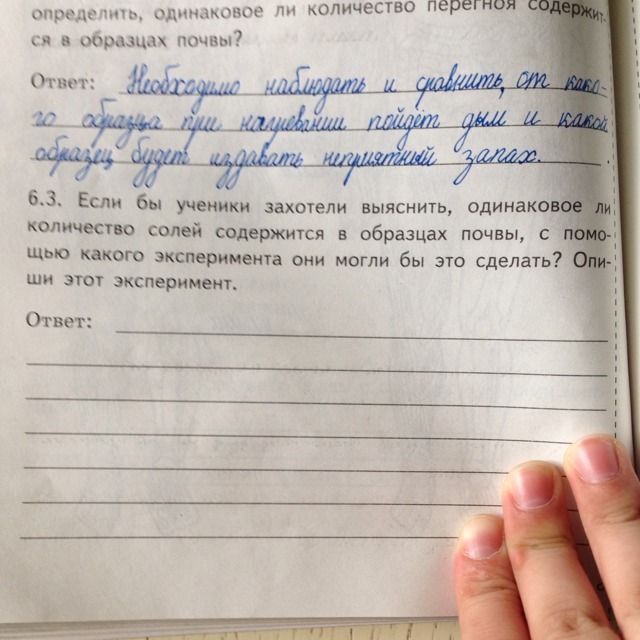 определить, одинаковое ли количество перегноя содержит-
ся в образцах почвы?
Ответ: Необходимо наблюдать и сравнить, от како-
го образца при нагревании пойдёт дым и какой
образец будет издавать неприятный запах.
6.3. Если бы ученики захотели выяснить, одинаковое ли
количество солей содержится в образцах почвы, с помо-
щью какого эксперимента они могли бы это сделать? Опи-
ши этот эксперимент.
Ответ: